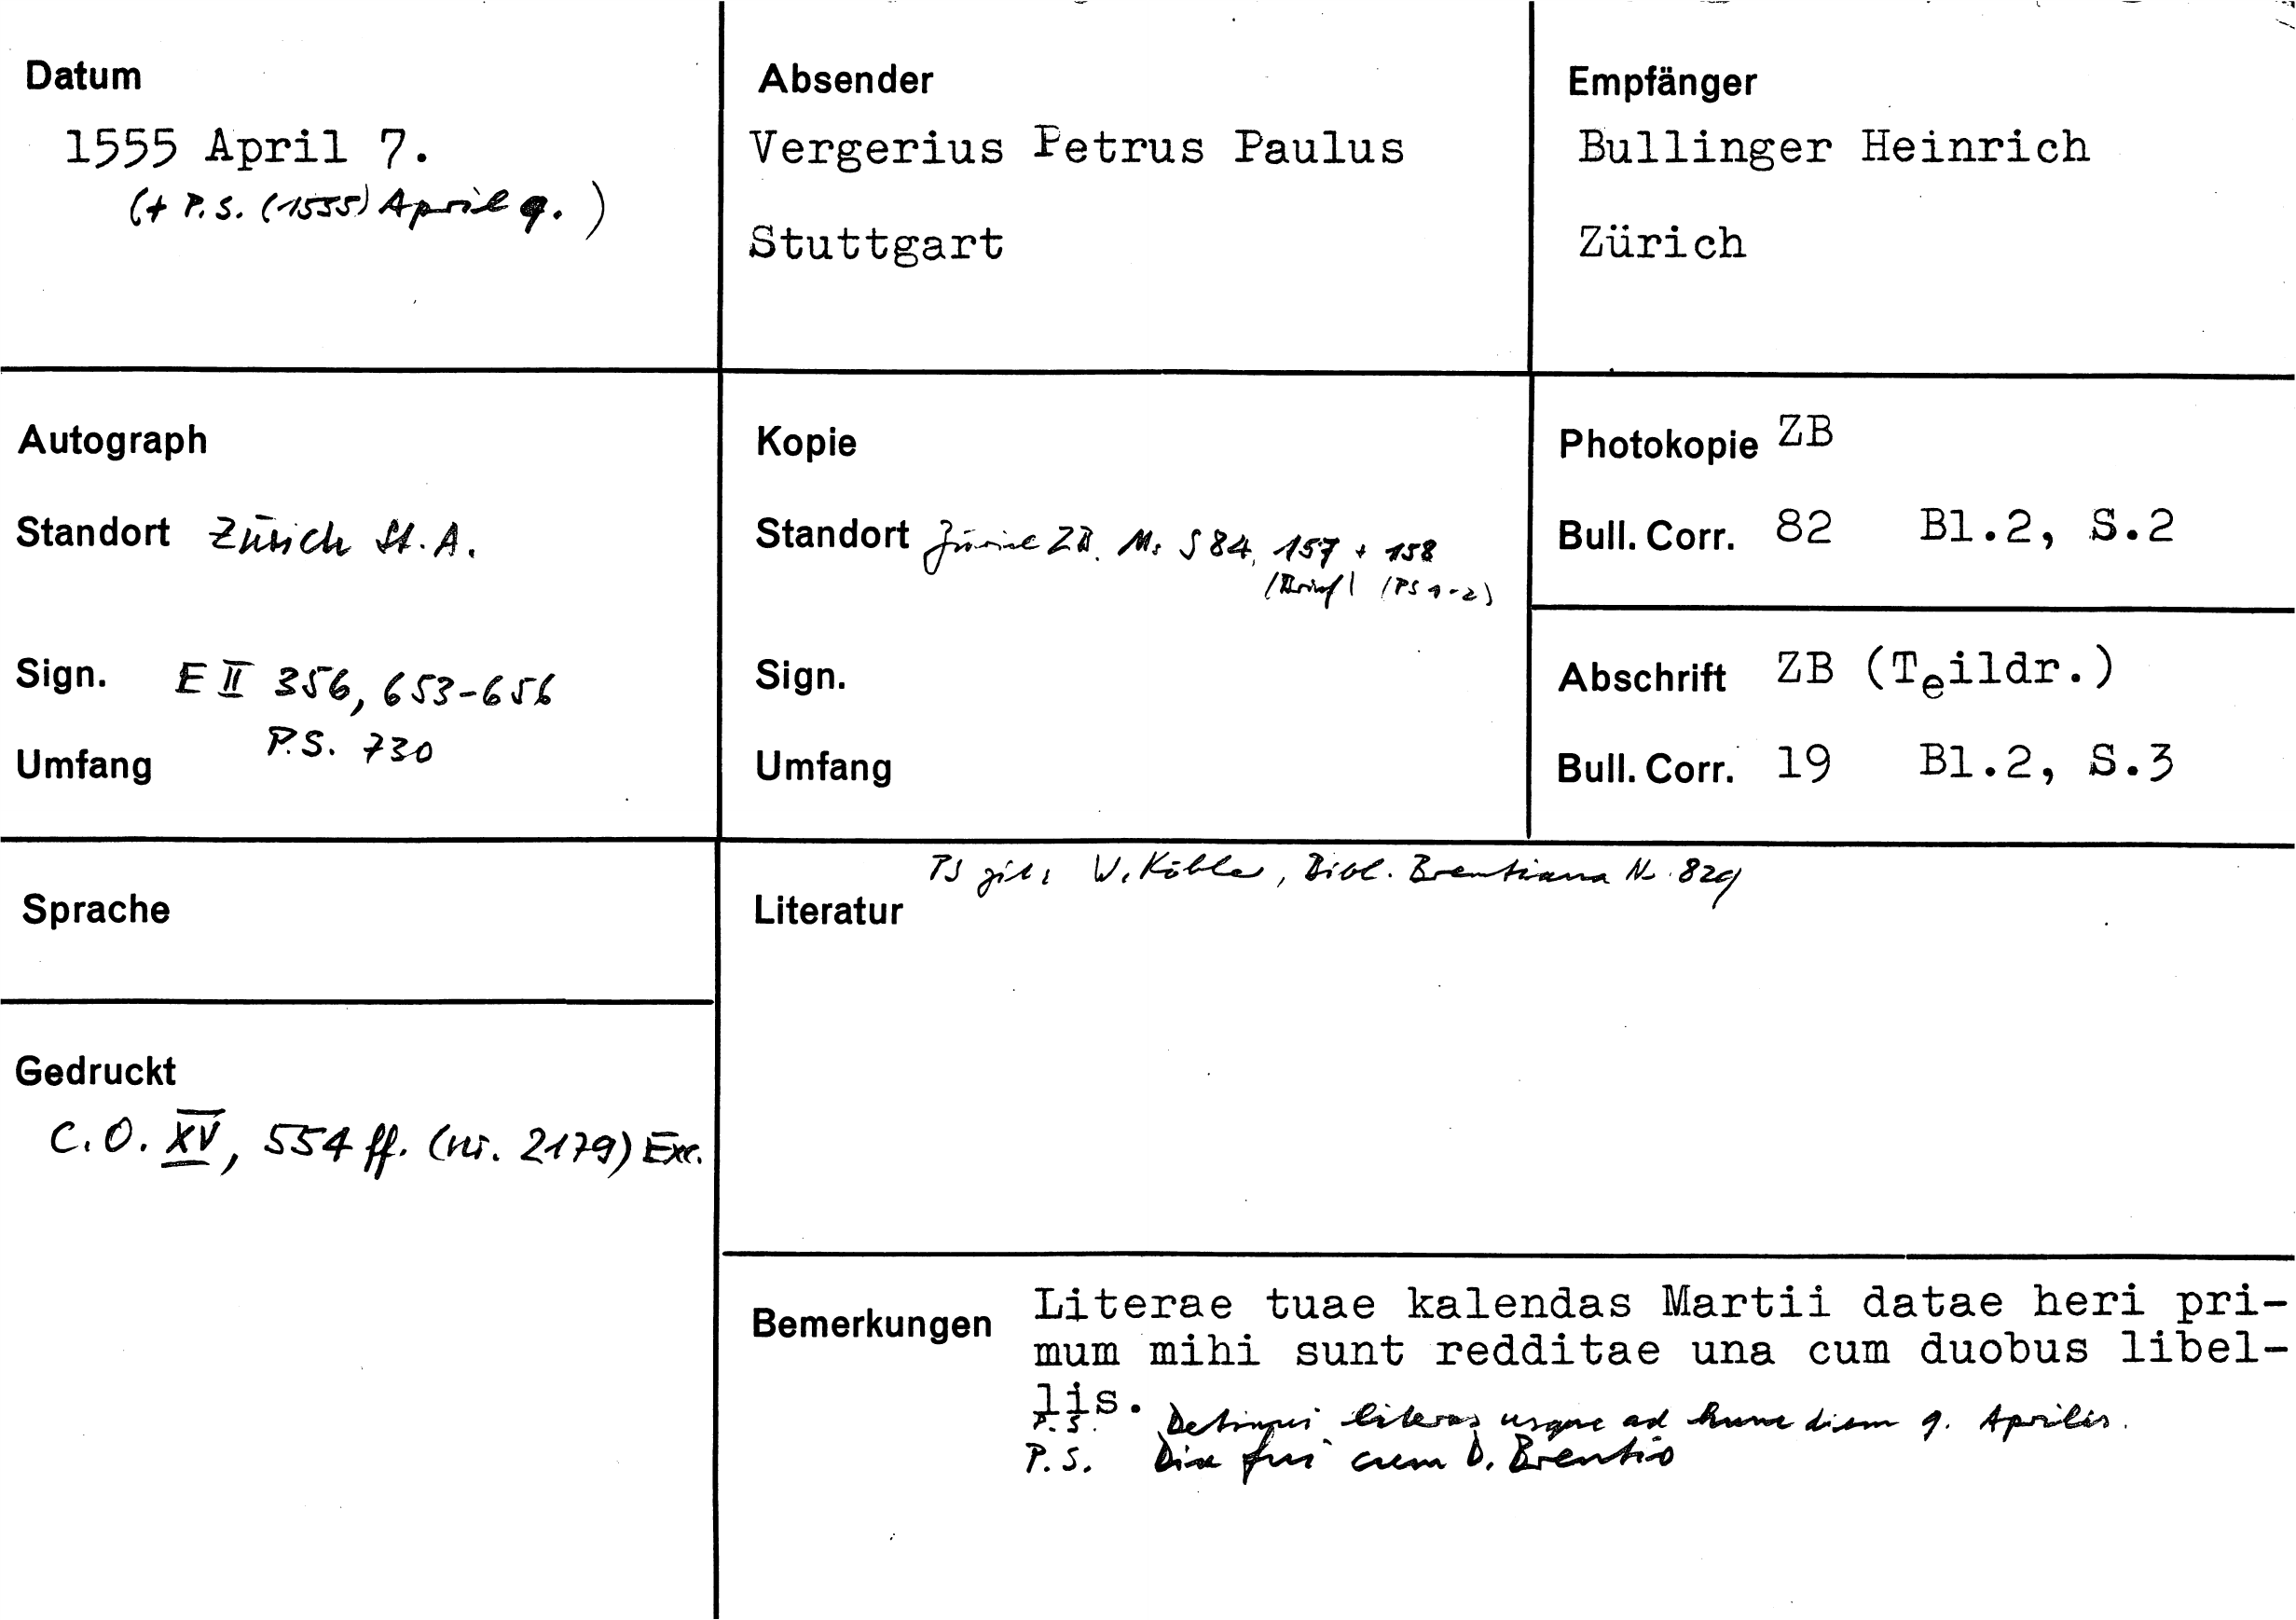 Datum
1555 April 7.
(+ P.S. (1555) April 9.)
Absender
Vergerius Petrus Paulus
Stuttgart
Empfänger
Bullinger Heinrich
Zürich
Autograph
Standort Zürich St. A.
Sign. E II 356, 653-656
P.S. 730
Umfang
Kopie
Standort Zürich ZB. Ms S 84, 157 + 158
(Brief) (PS 1-2)
Sign.
Umfang
Photokopie ZB
Bull. Corr. 82 Bl.2, S.2
Abschrift ZB (Teildr.)
Bull. Corr. 19 Bl.2, S.3
Sprache
Gedruckt
C.O. XV, 554 ff. (nr. 2179) Exc.
PS zit.: W. Köhler, Bibl. Brentiana Nr. 829
Literatur
Bemerkungen
Literae tuae kalendas Martii datae heri pri-
mum mihi sunt redditae una cum duobus libel-
lis.
P.S. Detinui literas usque ad hunc diem 9. Aprilis.
P.S. Diu fui cum D. Brentio